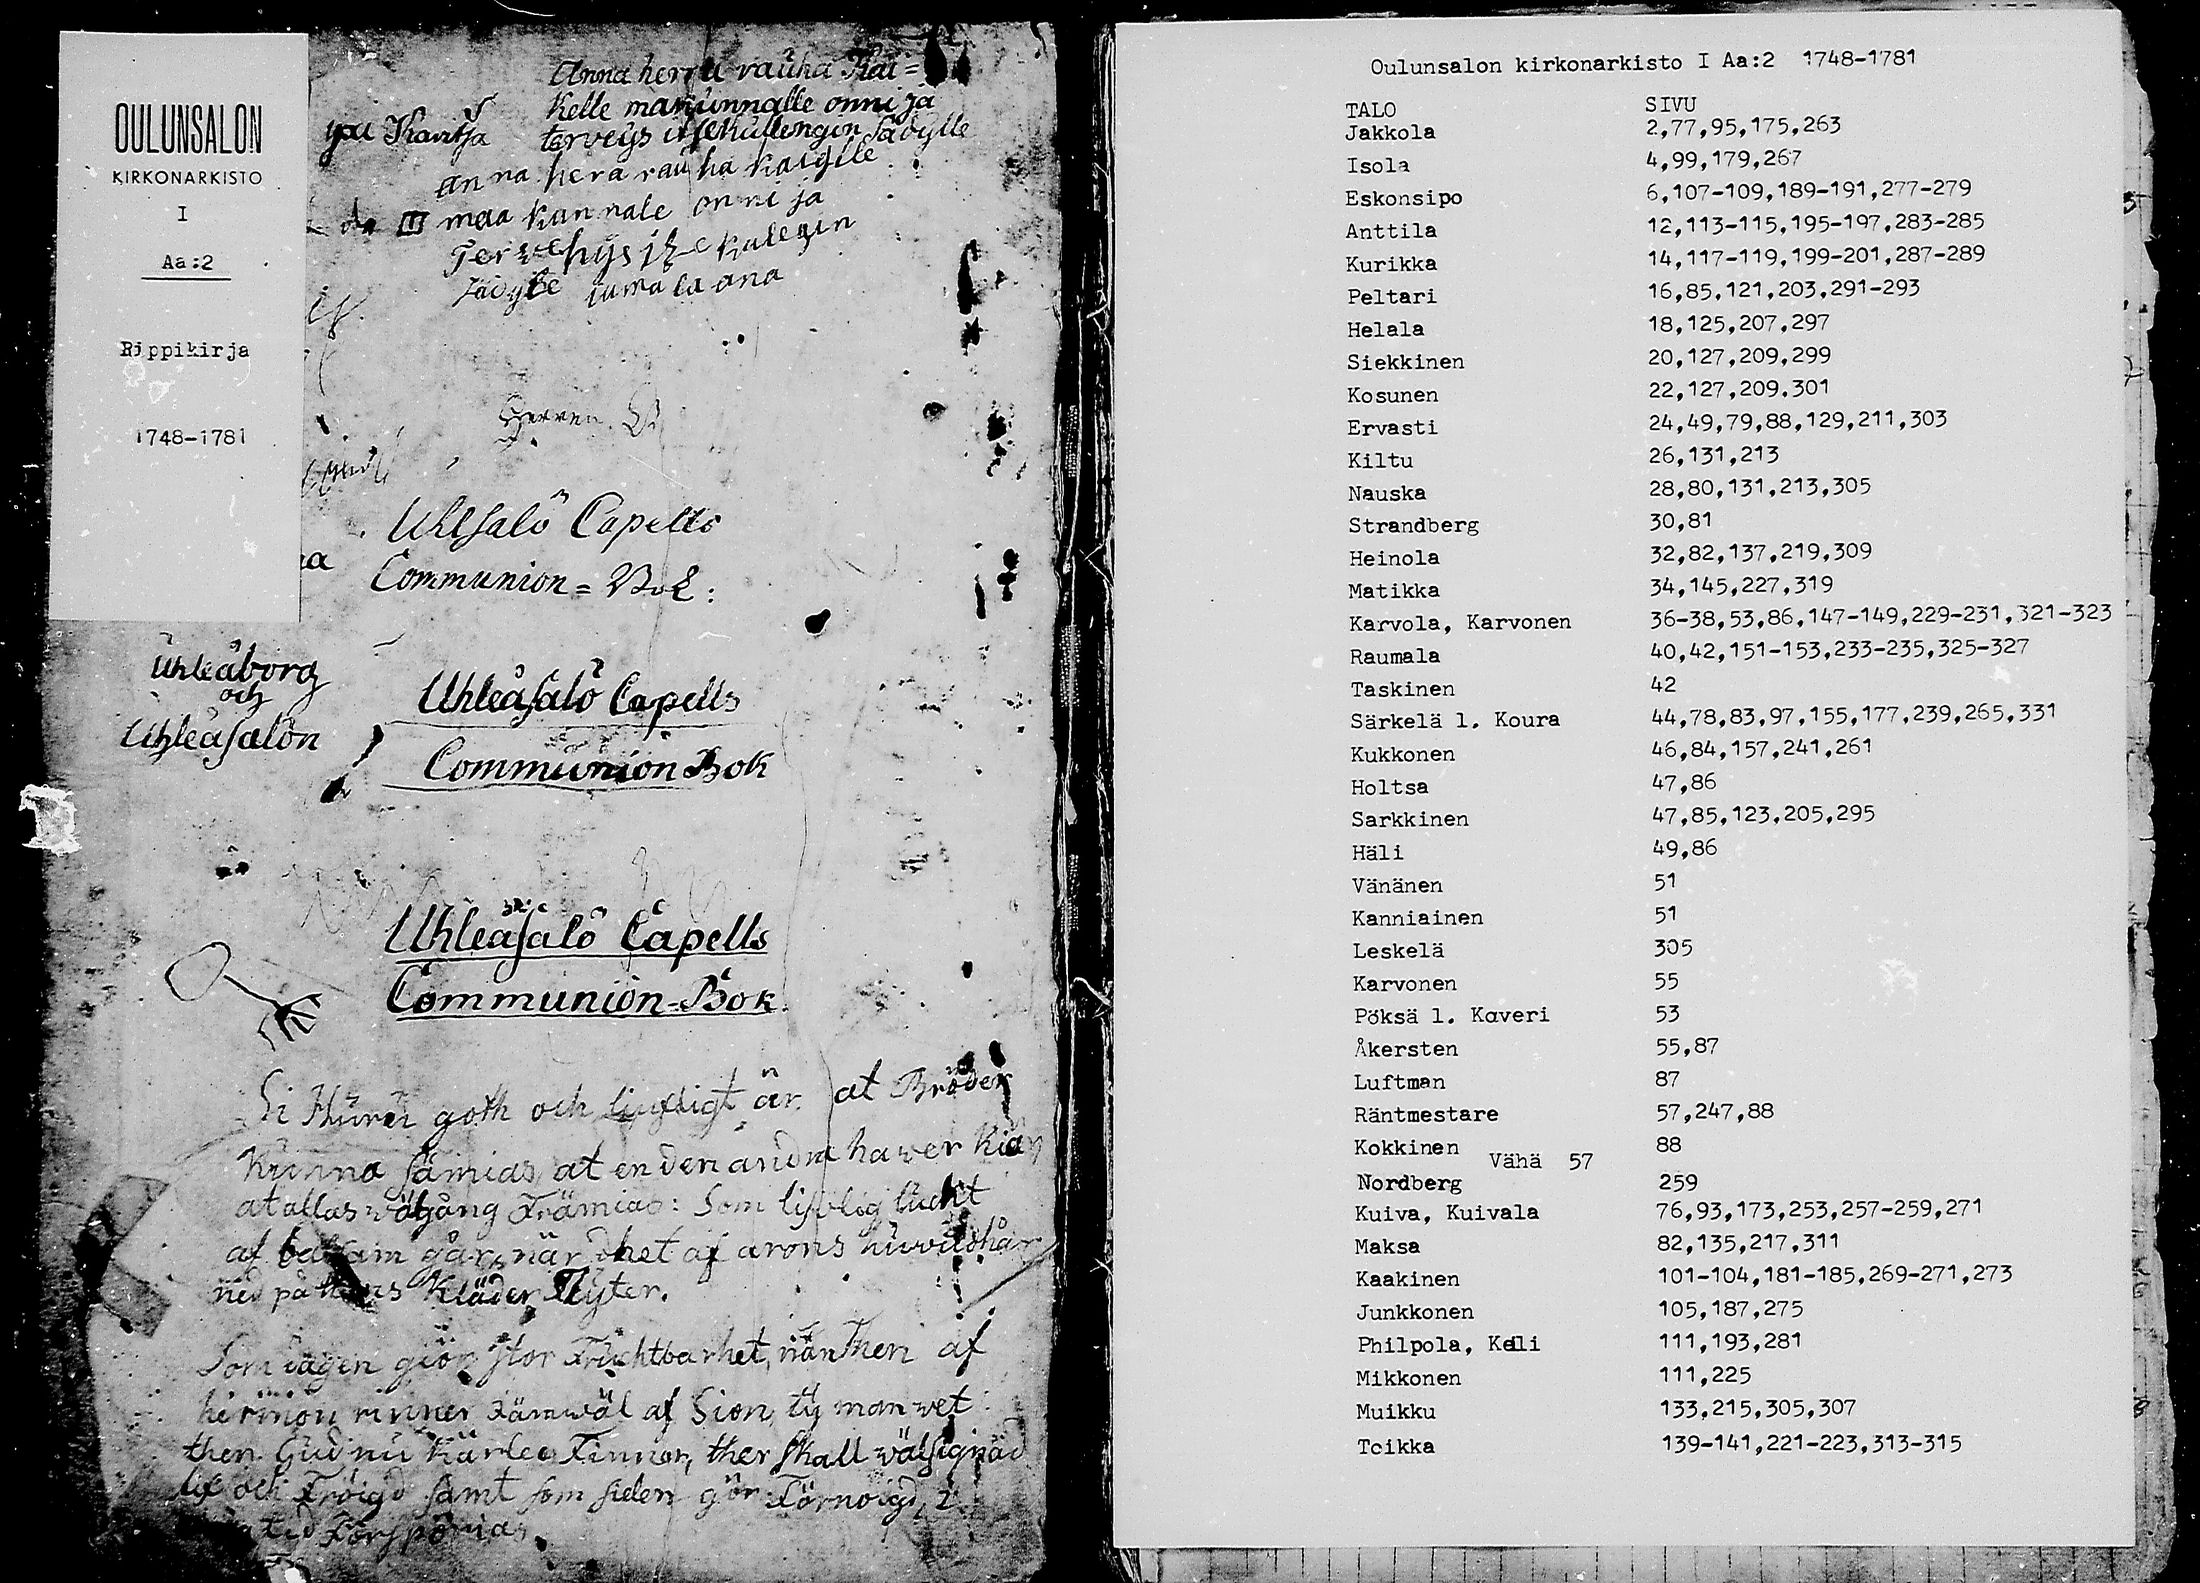 OULUNSALON
KIRKONARKISTO
I
Aa:2
Rippikirja
1748-1781
Anna herra rauha Kai=
kelle maakunnalle onni ja
terveys itsekullengin Sädylle
anna hera rauha kaiglle
maa kunnale onni ja
Tervehys
jumala ana
Herren
Uhlsalo Capells
Communion = Bok:
Uhleåborg
och
Uhleåsalön
Uhleåsalo Capells
Communion Bok
Uhleåsalo Capells
Communion-Bok
Si Huru goth och liufligt är at Bröder
Kunna sämias at en den andra haver kiär
at allas wälgång främias: Som liuflig lucht
af balsam går, när dhet af arons huvudhår
ned på hans Kläder Flyter.
Som dagen giör stor Fruchtbarhet, när then af
hermon rinner Jämwäl af Sion, ty man wet
then Gud nu kärlee Finner, ther skall wälsignäd
lif och Fröigd samt som siden gör Förnöigd,
Oulunsalon kirkonarkisto I Aa:2 1748-1781
TALO SIVU
Jakkola 2,77,95,175,263
Isola 4,99,179,267
Eskonsipo 6,107-109,189-191,277-279
Anttila 12,113-115,195-197,283-285
Kurikka 14,117-119,199-201,287-289
Peltari 16,85,121,203,291-293
Helala 18,125,207,297
Siekkinen 20,127,209,299
Kosunen 22,127,209.301
Ervasti 24,49,79,88,129,211,303
Kiltu 26,131,213
Nauska 28,80,131,213,305
Strandberg 30,81
Heinola 32,82,137,219,309
Matikka 34,145,227,319
Karvola, Karvonen 36-38,53,86,147-149,229-231,321-323
Raumala 40,42,151-153,233-235,325-327
Taskinen 42
Särkelä l. Koura 44,78,83,97,155,177,239,265,331
Kukkonen 46,84,157,241,261
Holtsa 47,86
Sarkkinen 47,85,123,205,295
Häli 49,86
Vänänen 51
Kanniainen 51
Leskelä 305
Karvonen 55
Pöksä l. Kaveri 53
Åkersten 55,87
Luftman 87
Räntmestare 57,247,88
Kokkinen 88
Vähä 57
Nordberg 259
Kuiva, Kuivala 76,93,173,253,257-259,271
Maksa 82,135,217,311
Kaakinen 101-104,181-185,269-271,273
Junkkonen 105,187,275
Philpola, Keli 111,193,281
Mikkonen 111,225
Muikku 133,215,305,307
Toikka 139-141,221-223,313-315